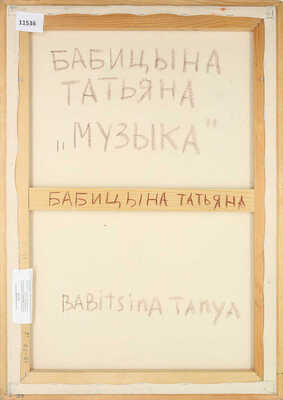 11536
БАБИЦЫНА
ТАТЬЯНА
„МУЗЫКА"
БАБИЦЫНА ТАТЬЯНА
BABitsinA TANYA